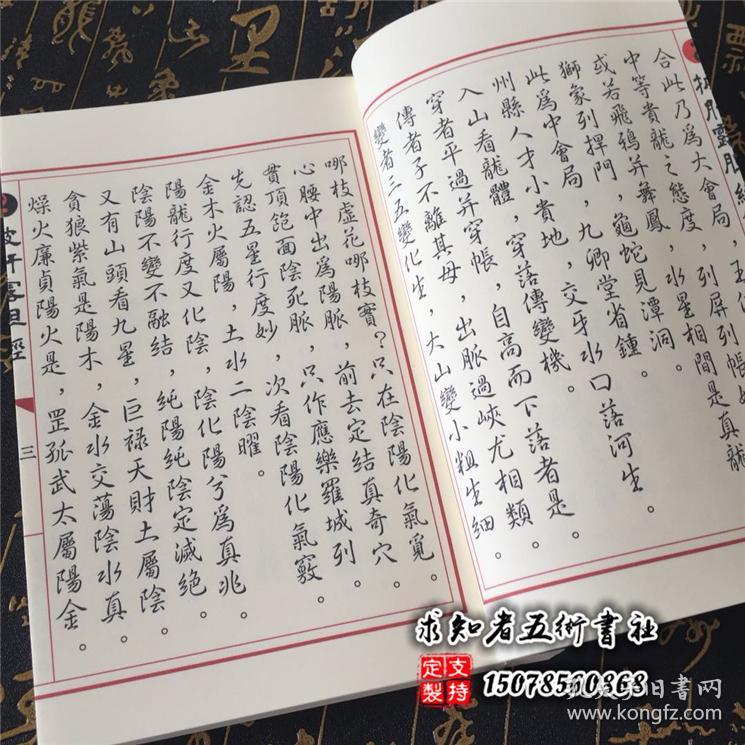 合此乃爲大會局，
中等貴龍之態度，列屏列帳
或若飛鴉并舞鳳，水星相間是真龍
獅象列捍門，龜蛇見潭洞。
此爲中會局，九卿堂省鍾。
州縣人才小貴地，交牙水口落河生。
入山看龍體，穿落傳變機。
穿者平過并穿帳，自高而下落者是。
傳者子不離其母，出脈過峽尤相類。
變者二五變化生，大山變小粗生細。
哪枝虛花哪枝實？只在陰陽化氣覓。
心腰中出爲陽脈，前去定結真奇穴。
貫頂飽面陰死脈，只作應樂羅城列。
先認五星行度妙，次看陰陽化氣竅。
金木火屬陽，土水二陰曜。
陽龍行度又化陰，陰化陽兮爲真兆。
陰陽不變不融結，純陽純陰定滅絕。
又有山頭看九星，巨禄天財土屬陰。
貪狼紫氣是陽木，金水交蕩陰水真。
燥火廉貞陽火是，罡孤武太屬陽金。
三
求知者五術書社
支持
定製
15078570868
孔夫子旧書网
www.kongfz.com